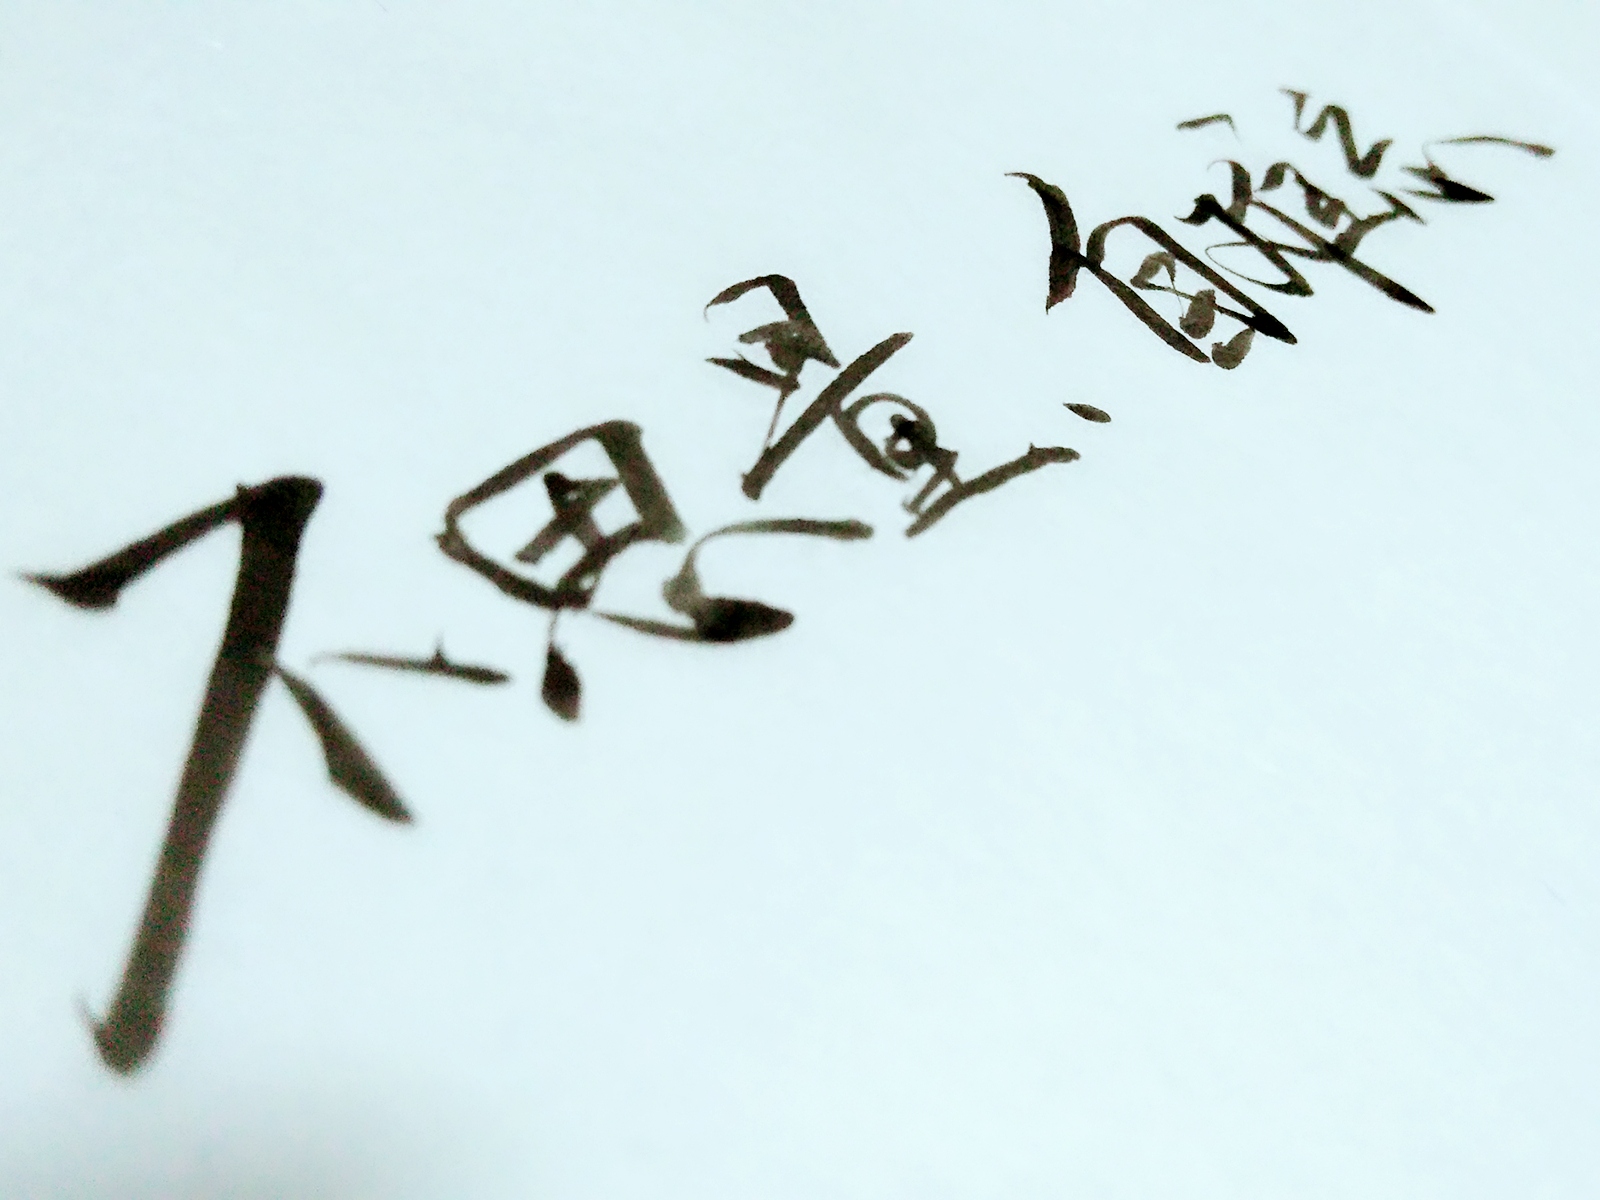 不思量自难忘